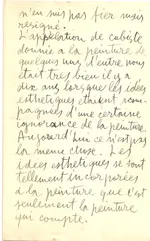 n'en suis pas fier mais
résigné.
L'appelation de cubiste
donnée a la peinture de
quelques uns d'entre nous
etait tres bien il y a
dix ans lorsque les idees
esthetiques etaient
d'une certaine
ignorance de la peinture.
Aujourd'hui ce n'est pas
la meme chose. Les
idees esthetiques se sont
tellement incorporées
a la peinture que c'est
seulement la peinture
qui compte.